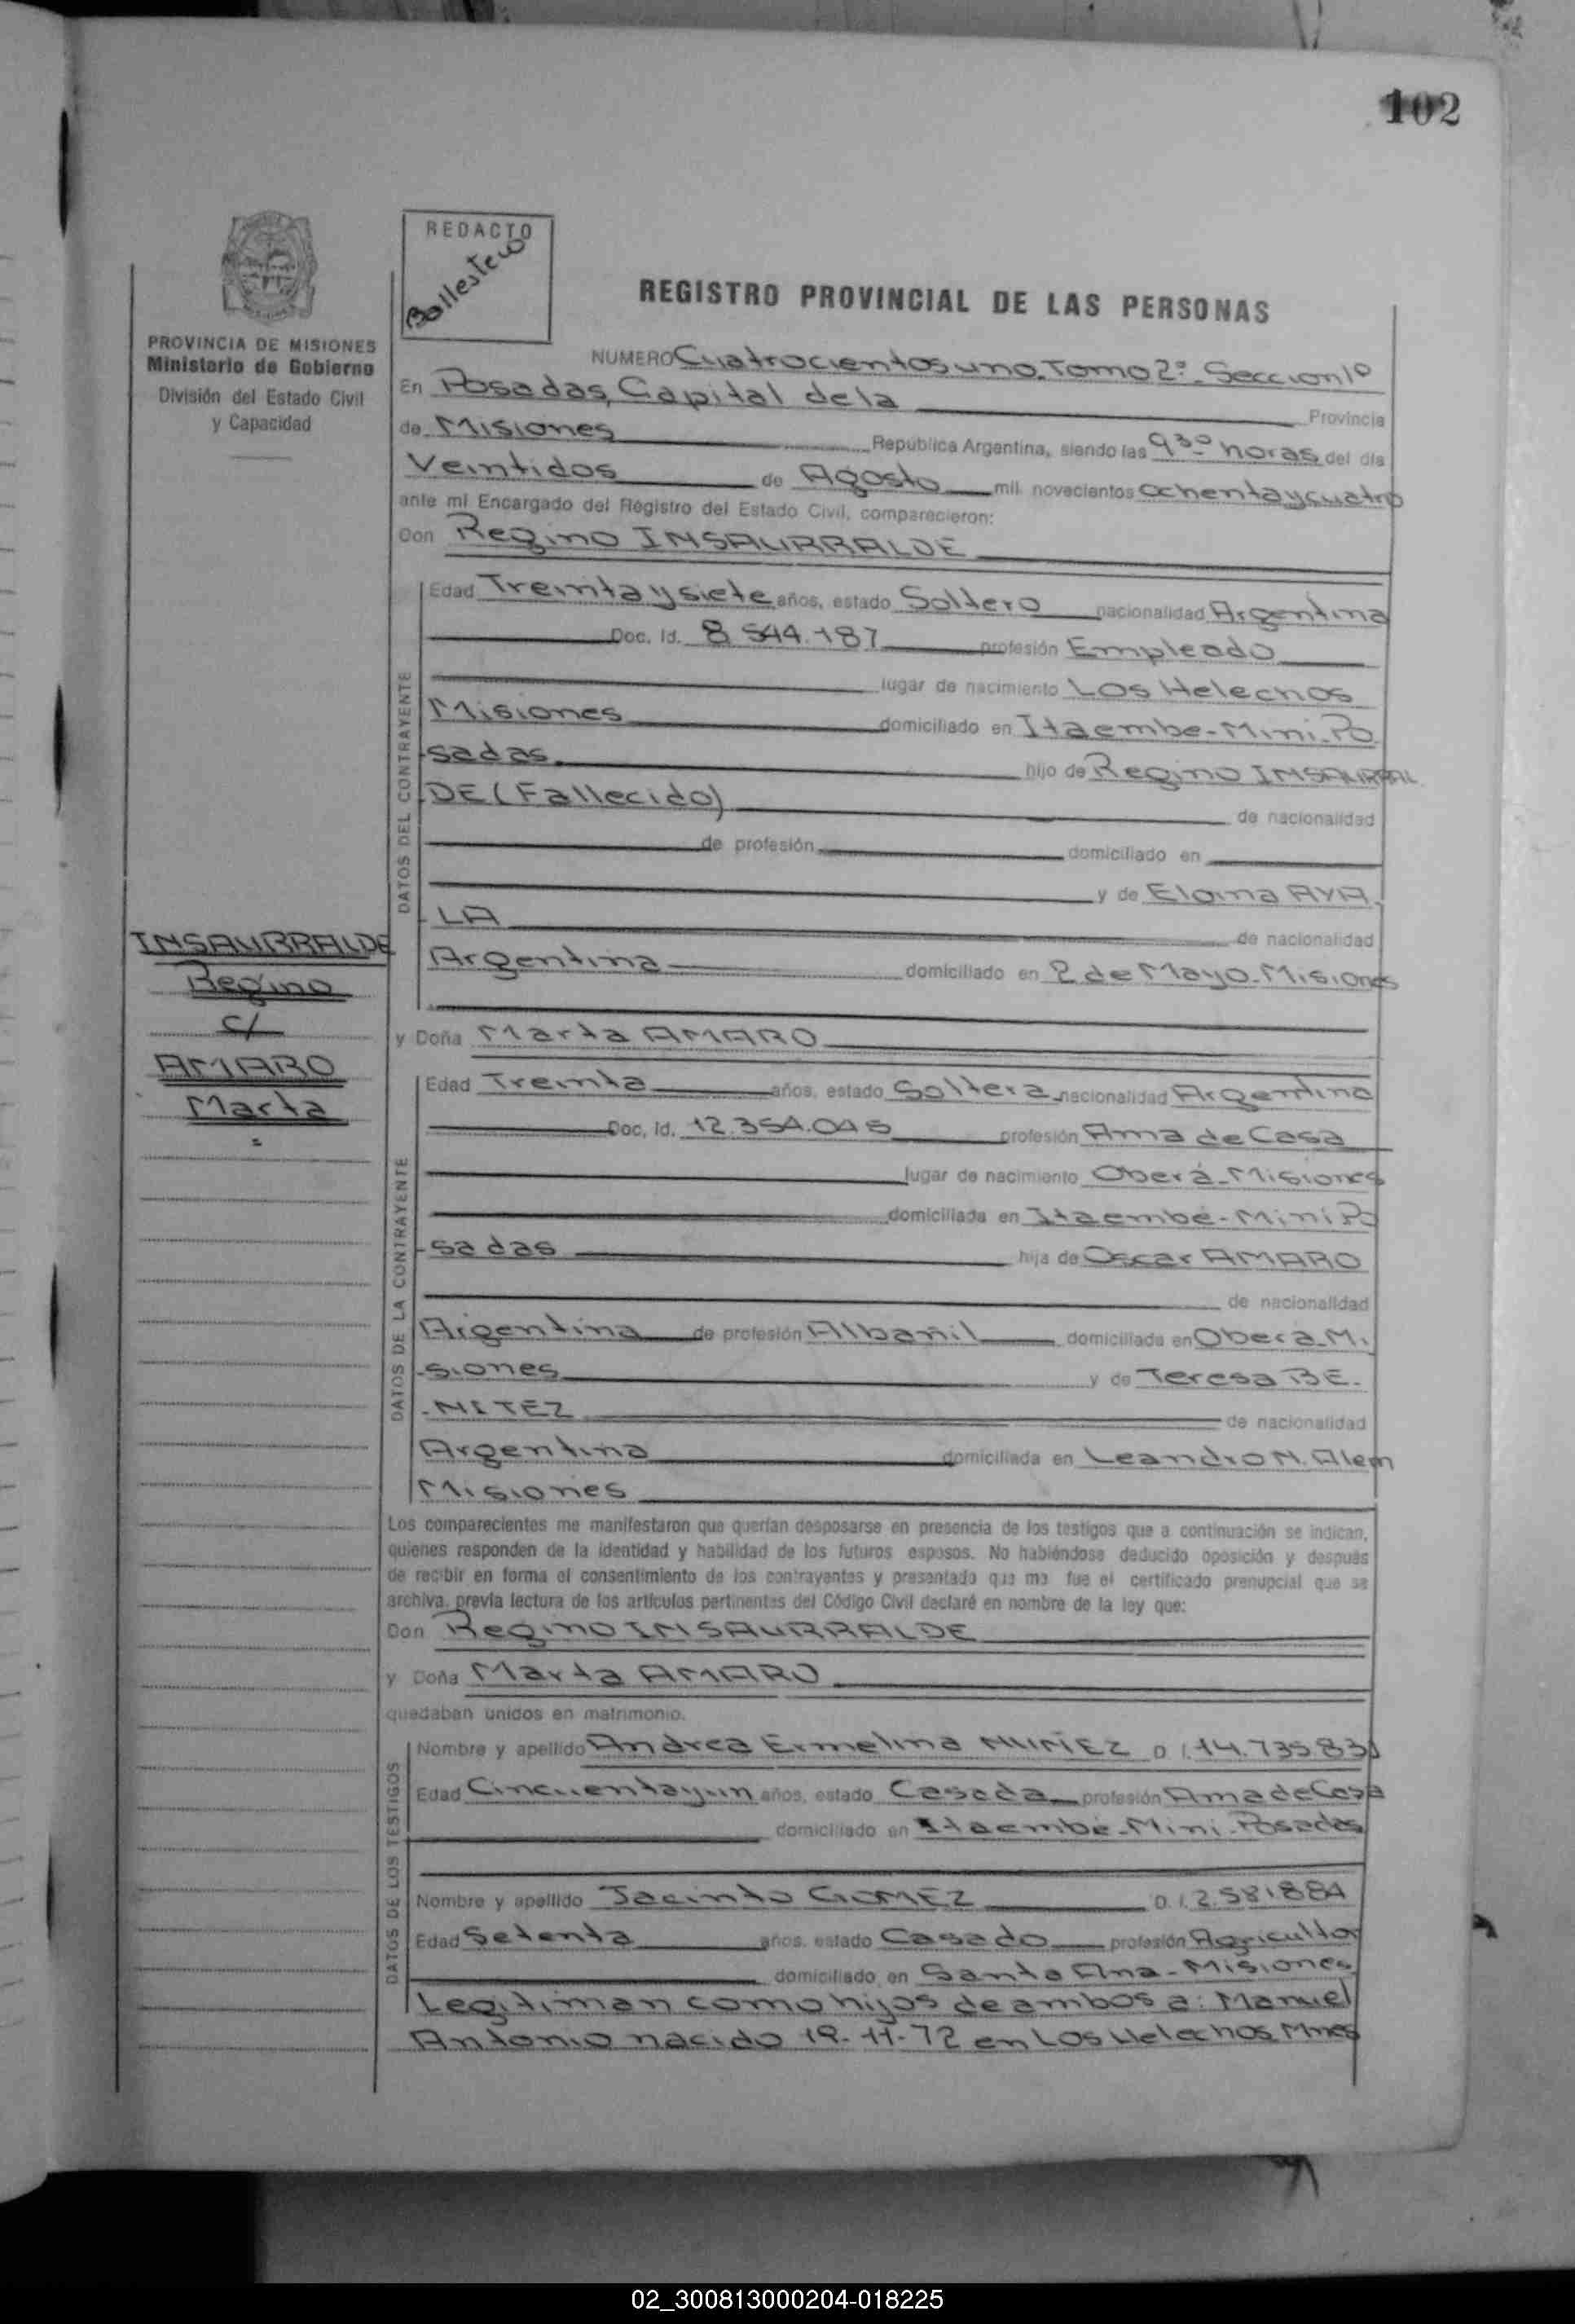 102
REDACTO
Ballestero
REGISTRO PROVINCIAL DE LAS PERSONAS
PROVINCIA DE MISIONES
Ministerio de Gobierno
División del Estado Civil
y Capacidad
NUMERO Cuatrocientos uno. Tomo 2º. Seccion 1º
En Posadas, Capital de la Provincia
de Misiones República Argentina, siendo las 9 30 horas del día
Veintidos de Agosto mil novecientos ochenta y cuatro
ante mí Encargado del Registro del Estado Civil, comparecieron:
Don Regino INSAURRALDE
DATOS DEL CONTRAYENTE
Edad Treinta y siete años, estado Soltero nacionalidad Argentina
Doc. Id. 8.544.187 profesión Empleado
lugar de nacimiento Los Helechos
Misiones domiciliado en Itaembe-Mini-Po
sadas. hijo de Regino INSAURRAL
DE (Fallecido) de nacionalidad
de profesión domiciliado en
y de Eloina AYA
LA de nacionalidad
Argentina domiciliado en 2 de Mayo-Misiones
INSAURRALDE
Regino
c/
AMARO
Marta
=
y Doña Marta AMARO
DATOS DE LA CONTRAYENTE
Edad Treinta años, estado Soltera nacionalidad Argentina
Doc. Id. 12.354.045 profesión Ama de Casa
lugar de nacimiento Oberá-Misiones
domiciliada en Itaembé-Mini Po
sadas hija de Oscar AMARO
de nacionalidad
Argentina de profesión Albañil domiciliado en Obera-Mi
siones y de Teresa BE-
-NITEZ de nacionalidad
Argentina domiciliada en Leandro N. Alem
Misiones
Los comparecientes me manifestaron que querían desposarse en presencia de los testigos que a continuación se indican,
quienes responden de la identidad y habilidad de los futuros esposos. No habiéndose deducido oposición y después
de recibir en forma el consentimiento de los contrayentes y presentado que me fue el certificado prenupcial que se
archiva, previa lectura de los artículos pertinentes del Código Civil declaré en nombre de la ley que:
Don Regino INSAURRALDE
y Doña Marta AMARO
quedaban unidos en matrimonio.
DATOS DE LOS TESTIGOS
Nombre y apellido Andrea Ermelina NUÑEZ D.I. 14.735.83
Edad Cincuenta y un años, estado Casada profesión Ama de Casa
domiciliado en Itaembé-Mini-Posadas
Nombre y apellido Jacinto GOMEZ D.I. 2.581.884
Edad Setenta años, estado Casado profesión Agricultor
domiciliado en Santa Ana-Misiones
Legitiman como hijos de ambos a: Manuel
Antonio nacido 19-11-72 en Los Helechos Mnes
02_300813000204-018225